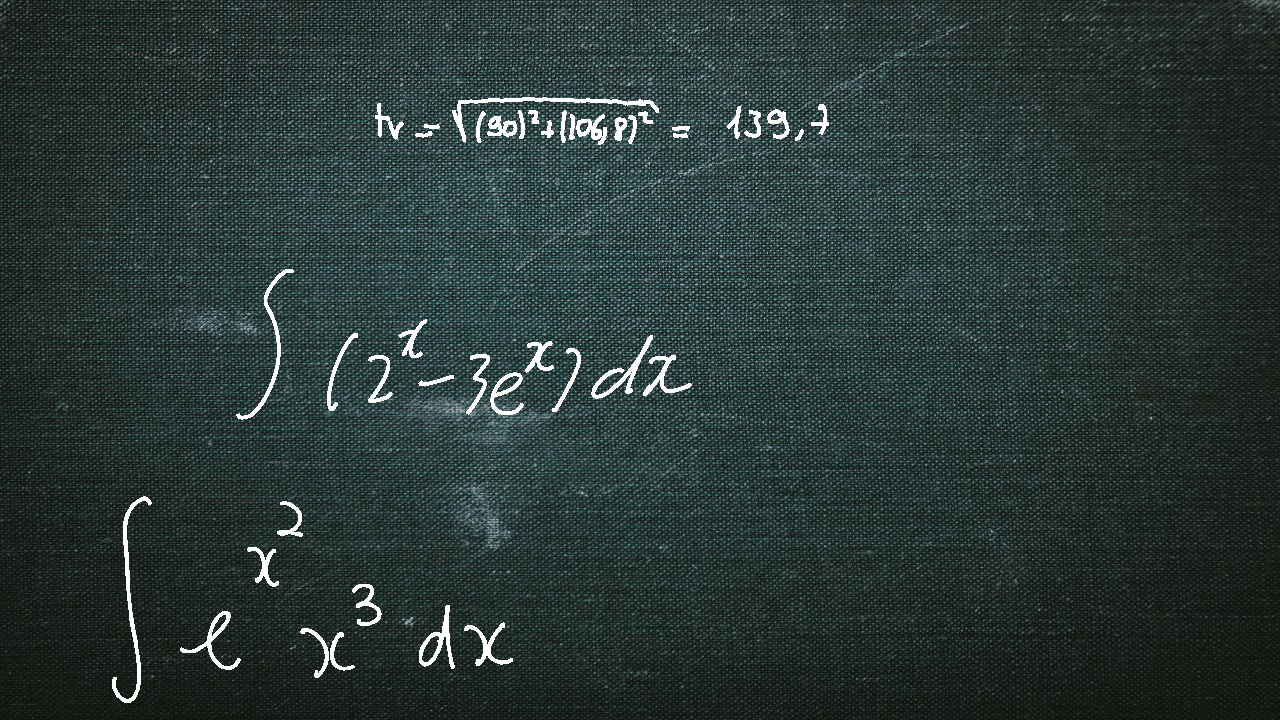 tv = √((90)² + (106,8)²) = 139,7
∫ (2ˣ − 3eˣ) dx
∫ e^(x²) x³ dx